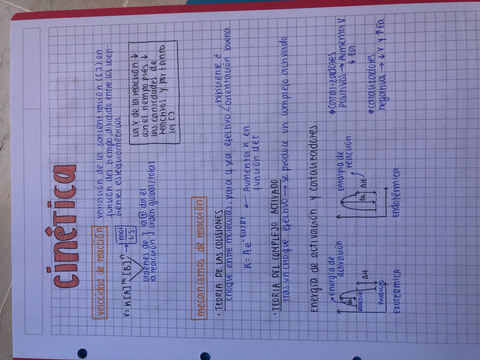 cinética
velocidad de reacción
variación de la concentración ([ ]) en
función del tiempo dividida entre los coefi-
cientes estequiométricos.
V = K[A]ᵐ[B]ⁿ → mol
L·s
órdenes de
la reacción } orden global/total
La V de la reacción ↓
con el tiempo pues ↓
las cantidades de
reactivos y por tanto
la [ ]
mecanismos de reacción
· TEORÍA DE LAS COLISIONES
choque entre moléculas, para q sea efectivo
suficiente E
orientación buena
K = A e^-Ea/RT ← Aumenta K en
función de T
· TEORÍA DEL COMPLEJO ACTIVADO
Tras un choque efectivo → se produce un complejo activado
energía de activación y catalizadores
energía de
activación
ΔH
exotérmica
energía de
reacción
ΔH
Endotérmica
• catalizadores
Positivos → Aumenta V
↓ Ea
• catalizadores
negativos → ↓ V y ↑ Ea